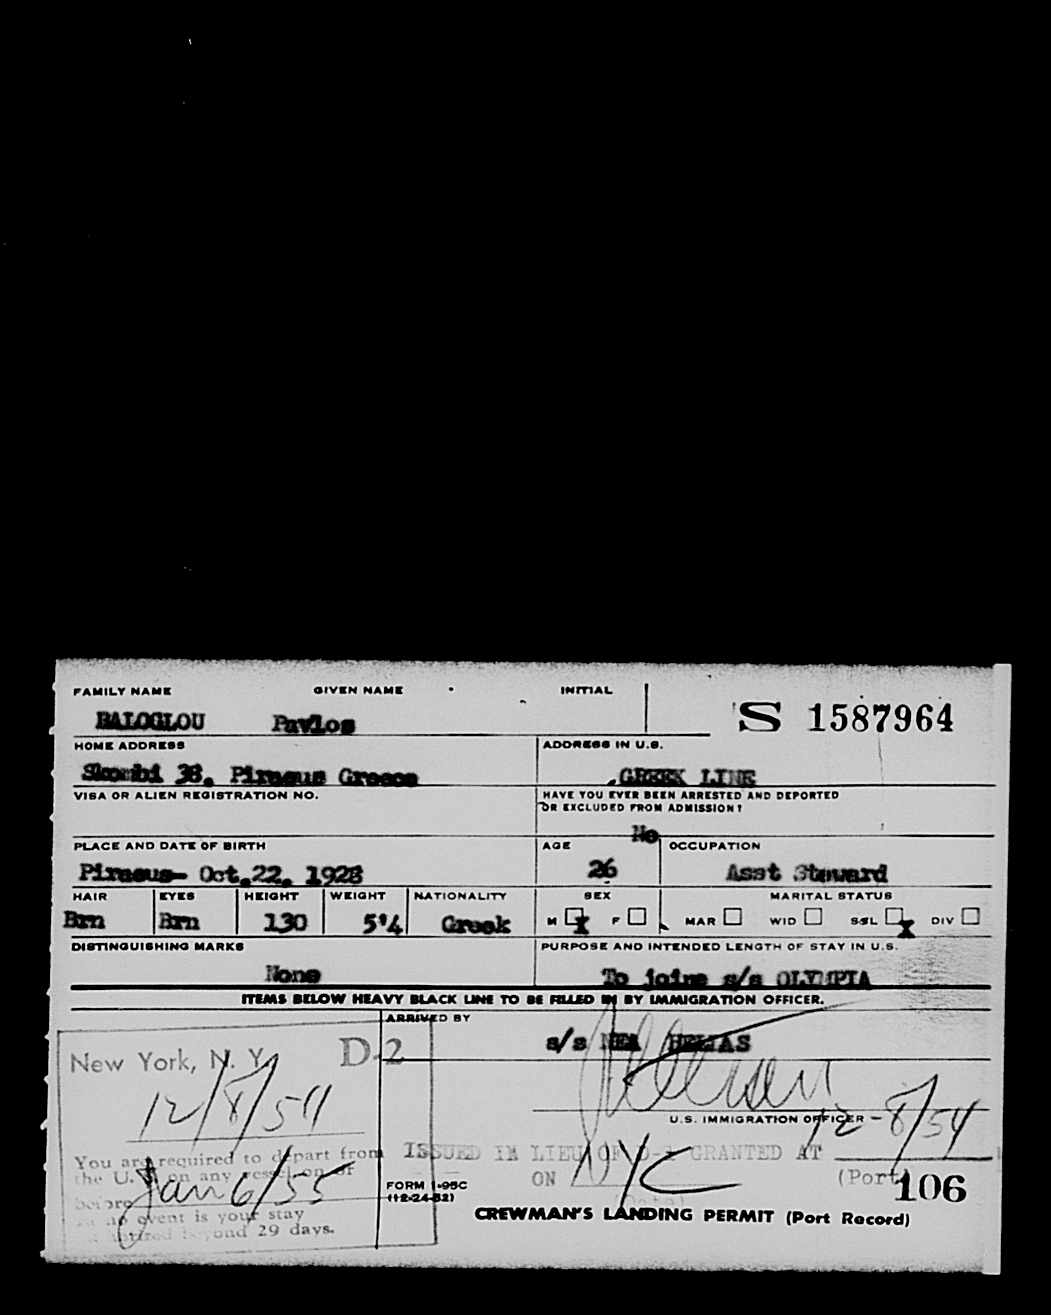 FAMILY NAME GIVEN NAME INITIAL
BALOGLOU Pavlos
S 1587964
HOME ADDRESS ADDRESS IN U.S.
Skombi 38, Piraeus Greece GREEK LINE
VISA OR ALIEN REGISTRATION NO. HAVE YOU EVER BEEN ARRESTED AND DEPORTED
OR EXCLUDED FROM ADMISSION?
No
PLACE AND DATE OF BIRTH AGE OCCUPATION
Piraeus- Oct.22, 1928 26 Asst Steward
HAIR EYES HEIGHT WEIGHT NATIONALITY SEX MARITAL STATUS
Brn Brn 130 5'4 Greek M X F MAR WID SGL X DIV
DISTINGUISHING MARKS PURPOSE AND INTENDED LENGTH OF STAY IN U.S.
None To joine s/s OLYMPIA
ITEMS BELOW HEAVY BLACK LINE TO BE FILLED IN BY IMMIGRATION OFFICER.
ARRIVED BY
s/s NEA HELLAS
New York, N. Y. D-2
12/8/54
U.S. IMMIGRATION OFFICER
12-8/54
You are required to depart from
the U.S. on any vessel on or
before Jan 6/55
in no event is your stay
beyond 29 days.
ISSUED IN LIEU OF D-1 GRANTED AT
(Port)
ON NYC
(Date)
FORM I-95C
(12-24-52)
106
CREWMAN'S LANDING PERMIT (Port Record)